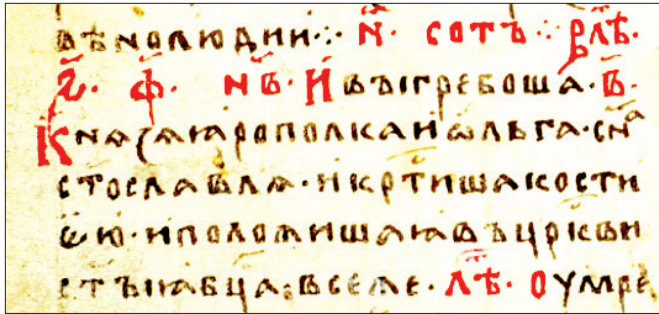 вѣколюдии ⁘ н҃ · сотъ ⁘ в лѣ҃ ·
҂ѕ҃ · ф҃ · н҃в҃ · И въıгребоша · в҃ ·
Кнѧзѧ ıарополка и ѡльга · сн҃а
ст҃ославлѧ · и крт҃иша кости
ѥю · и положиша ıа въ цр҃кви
ст҃ъıꙗ бц҃а ⁘ в семже · лѣ҃ · оумре